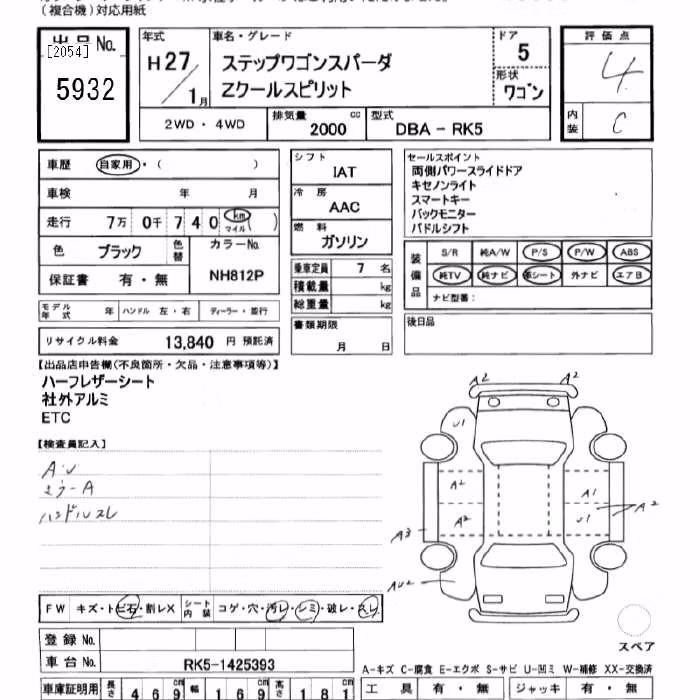 (複合機)対応用紙
出品No.
[2054]
5932
年式
H27/1月
車名・グレード
ステップワゴンスパーダ
Zクールスピリット
ドア
5
形状
ワゴン
評価点
4
内装
C
2WD・4WD
排気量
2000 cc
型式
DBA - RK5
車歴 自家用・( )
車検 年 月
走行 7万 0千 7 4 0 km マイル( )
色 ブラック 色替
カラーNo.
NH812P
保証書 有・無
シフト
IAT
冷房
AAC
燃料
ガソリン
乗車定員 7 名
積載量 kg
総重量 kg
書類期限
月 日
セールスポイント
両側パワースライドドア
キセノンライト
スマートキー
バックモニター
パドルシフト
装備品
S/R 純A/W P/S P/W ABS
純TV 純ナビ 革シート 外ナビ エアB
ナビ型番:
後日品
モデル年式 年 ハンドル 左・右 ディーラー・並行
リサイクル料金 13,840 円 預託済
【出品店申告欄(不良箇所・欠品・注意事項等)】
ハーフレザーシート
社外アルミ
ETC
【検査員記入】
A・U
ハンドルスレ
A2 A2
U1
A2 A1
A2 U1 A2
A3
AU2
スペア
FW キズ・トビ石・割レX シート内装 コゲ・穴・汚レ・シミ・破レ・スレ
登録No.
車台No. RK5-1425393
車庫証明用 長さ 469 幅 169 高さ 181
A-キズ C-腐食 E-エクボ S-サビ U-凹ミ W-補修 XX-交換済
工具 有・無 ジャッキ 有・無